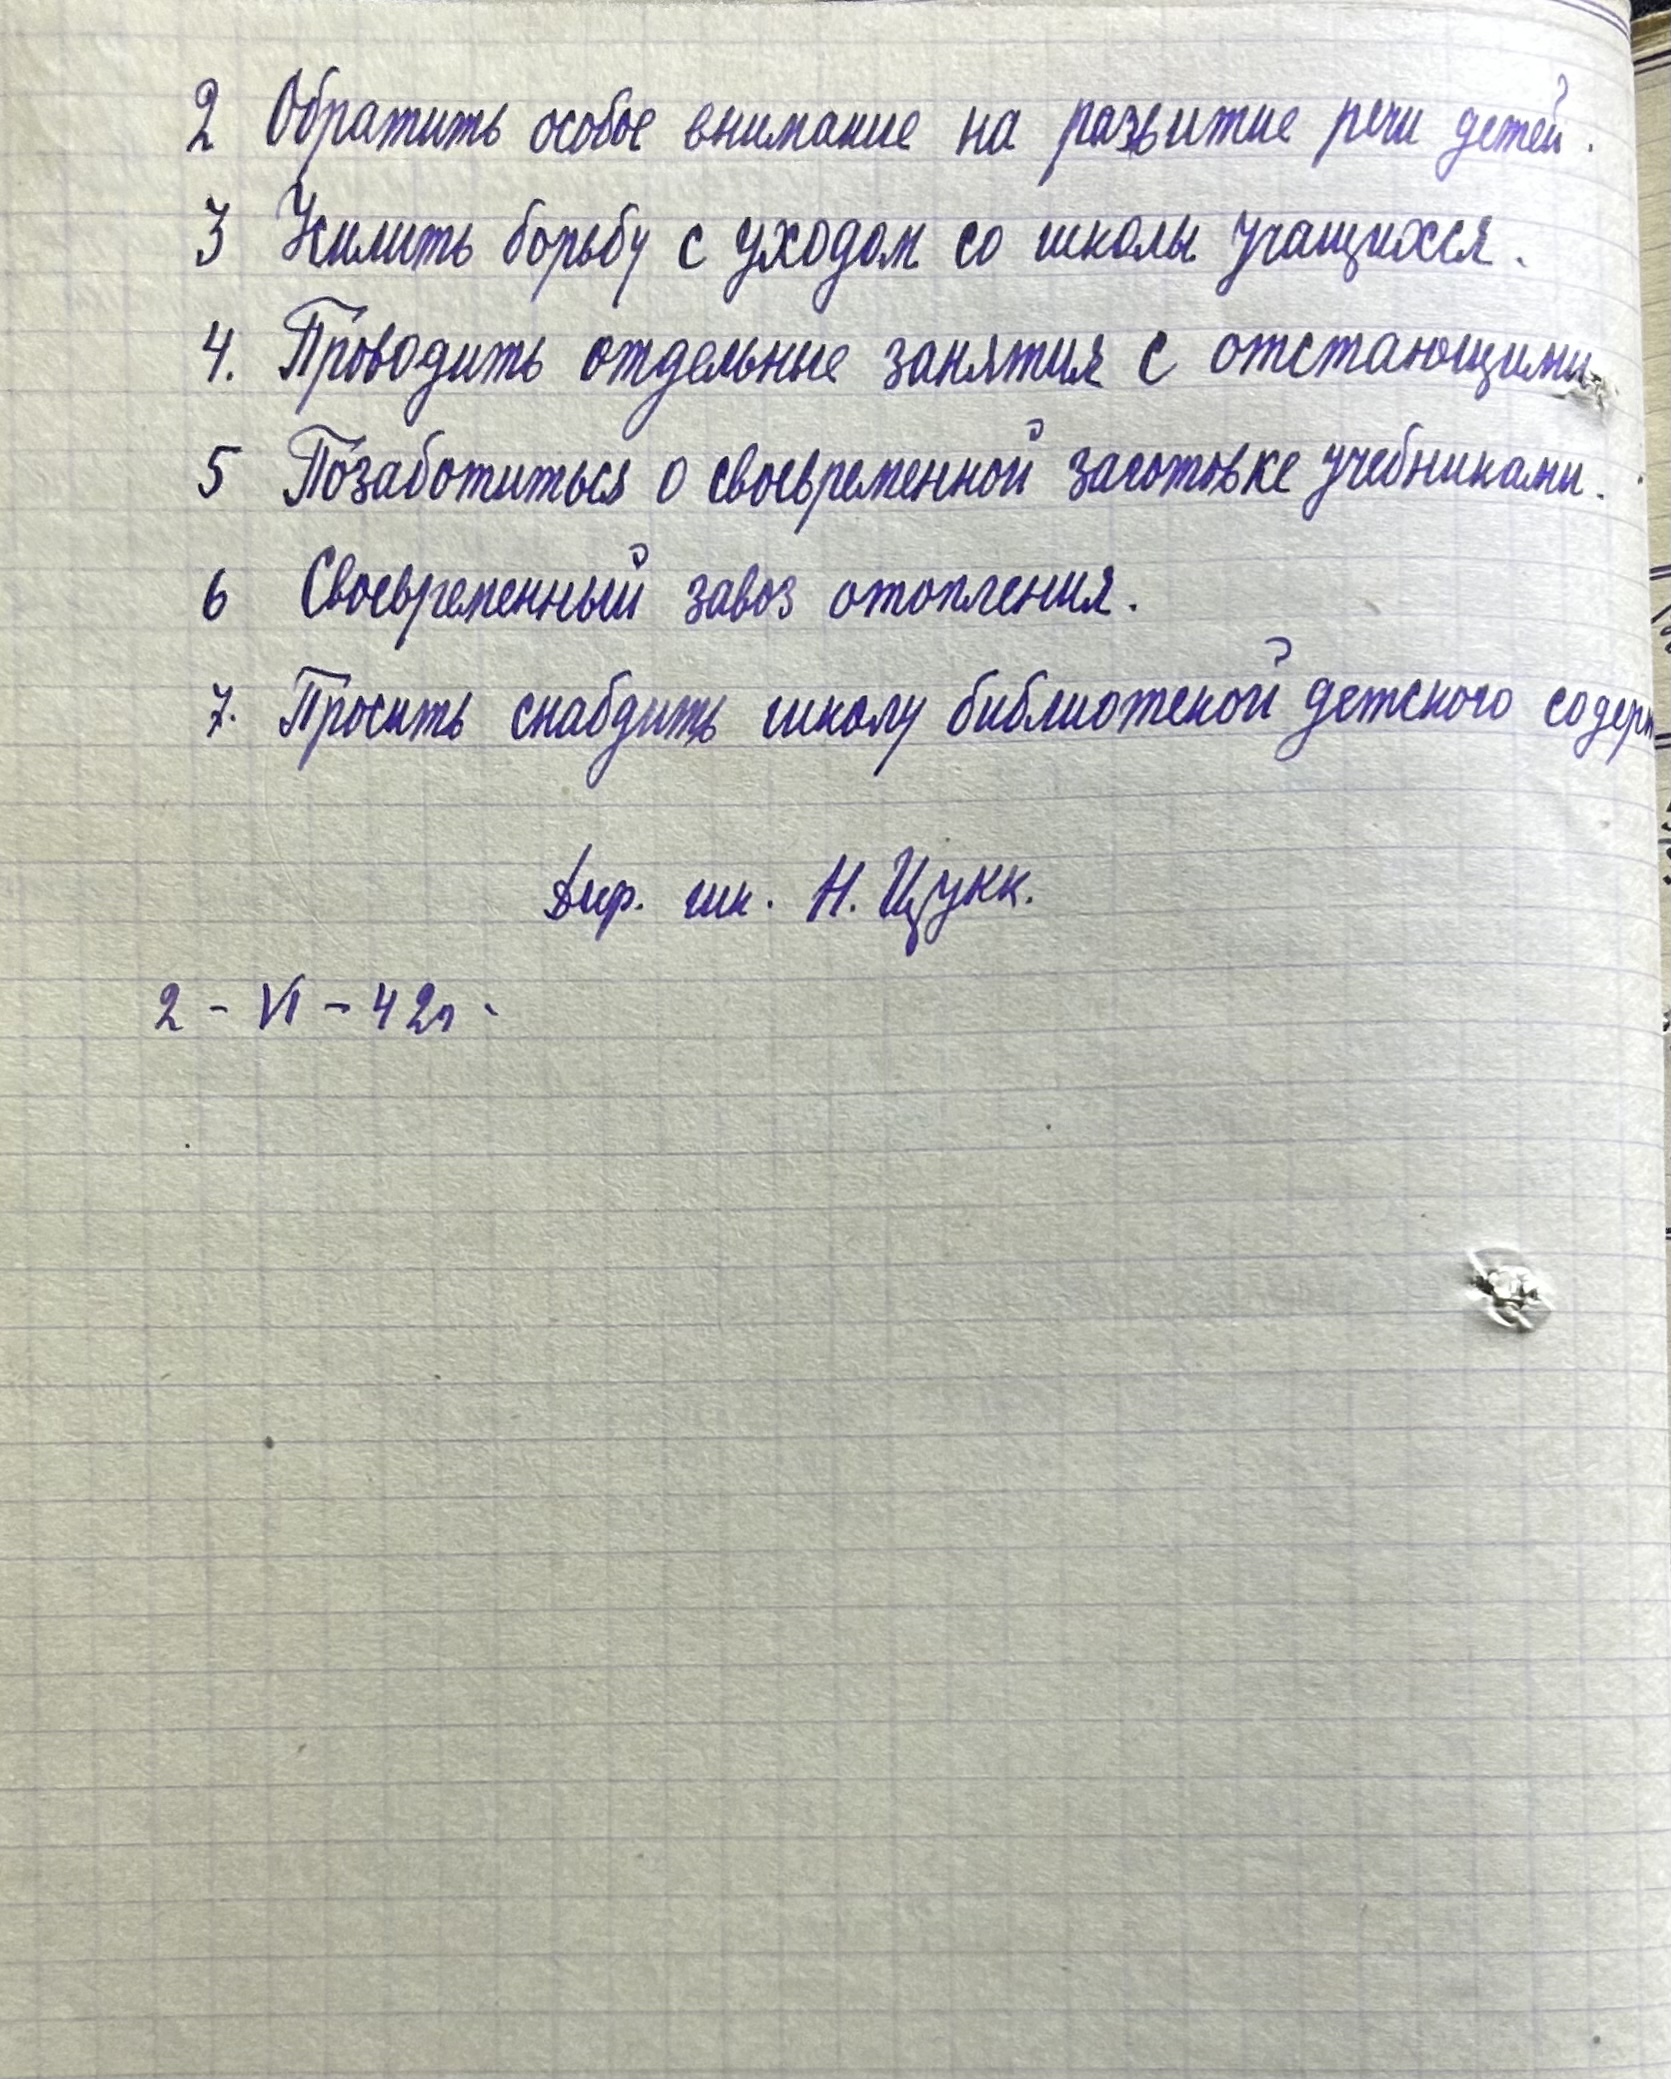 2 Обратить особое внимание на развитие речи детей.
3 Усилить борьбу с уходом со школы учащихся.
4. Проводить отдельные занятия с отстающими.
5 Позаботиться о своевременной заготовке учебниками.
6 Своевременный завоз отопления.
7. Просить снабдить школу библиотекой детского
Дир. шк. Н. Цукк.
2 - VI - 42г.